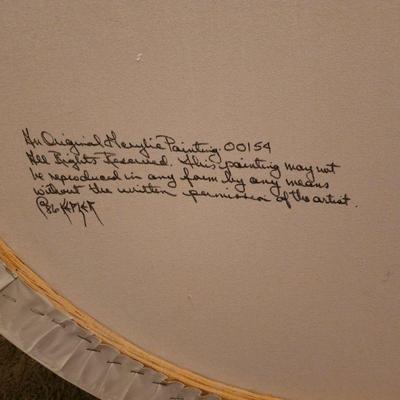 An Original Acrylic Painting. 00154
All Rights Reserved. This painting may not
be reproduced in any form by any means
without the written permission of the artist.
©86